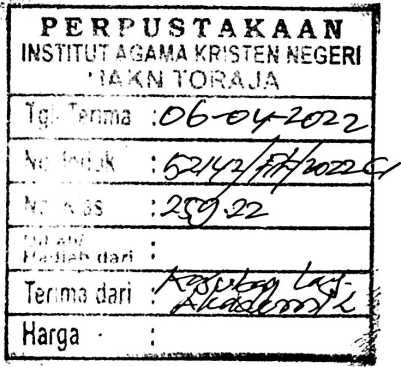 PERPUSTAKAAN
INSTITUT AGAMA KRISTEN NEGERI
IAKN TORAJA
Tgl. Terima : 06-04-2022
No. Induk : 52142/
No. Klas : 259.22
Hadiah dari :
Terima dari : Kasubag
Akademik
Harga :